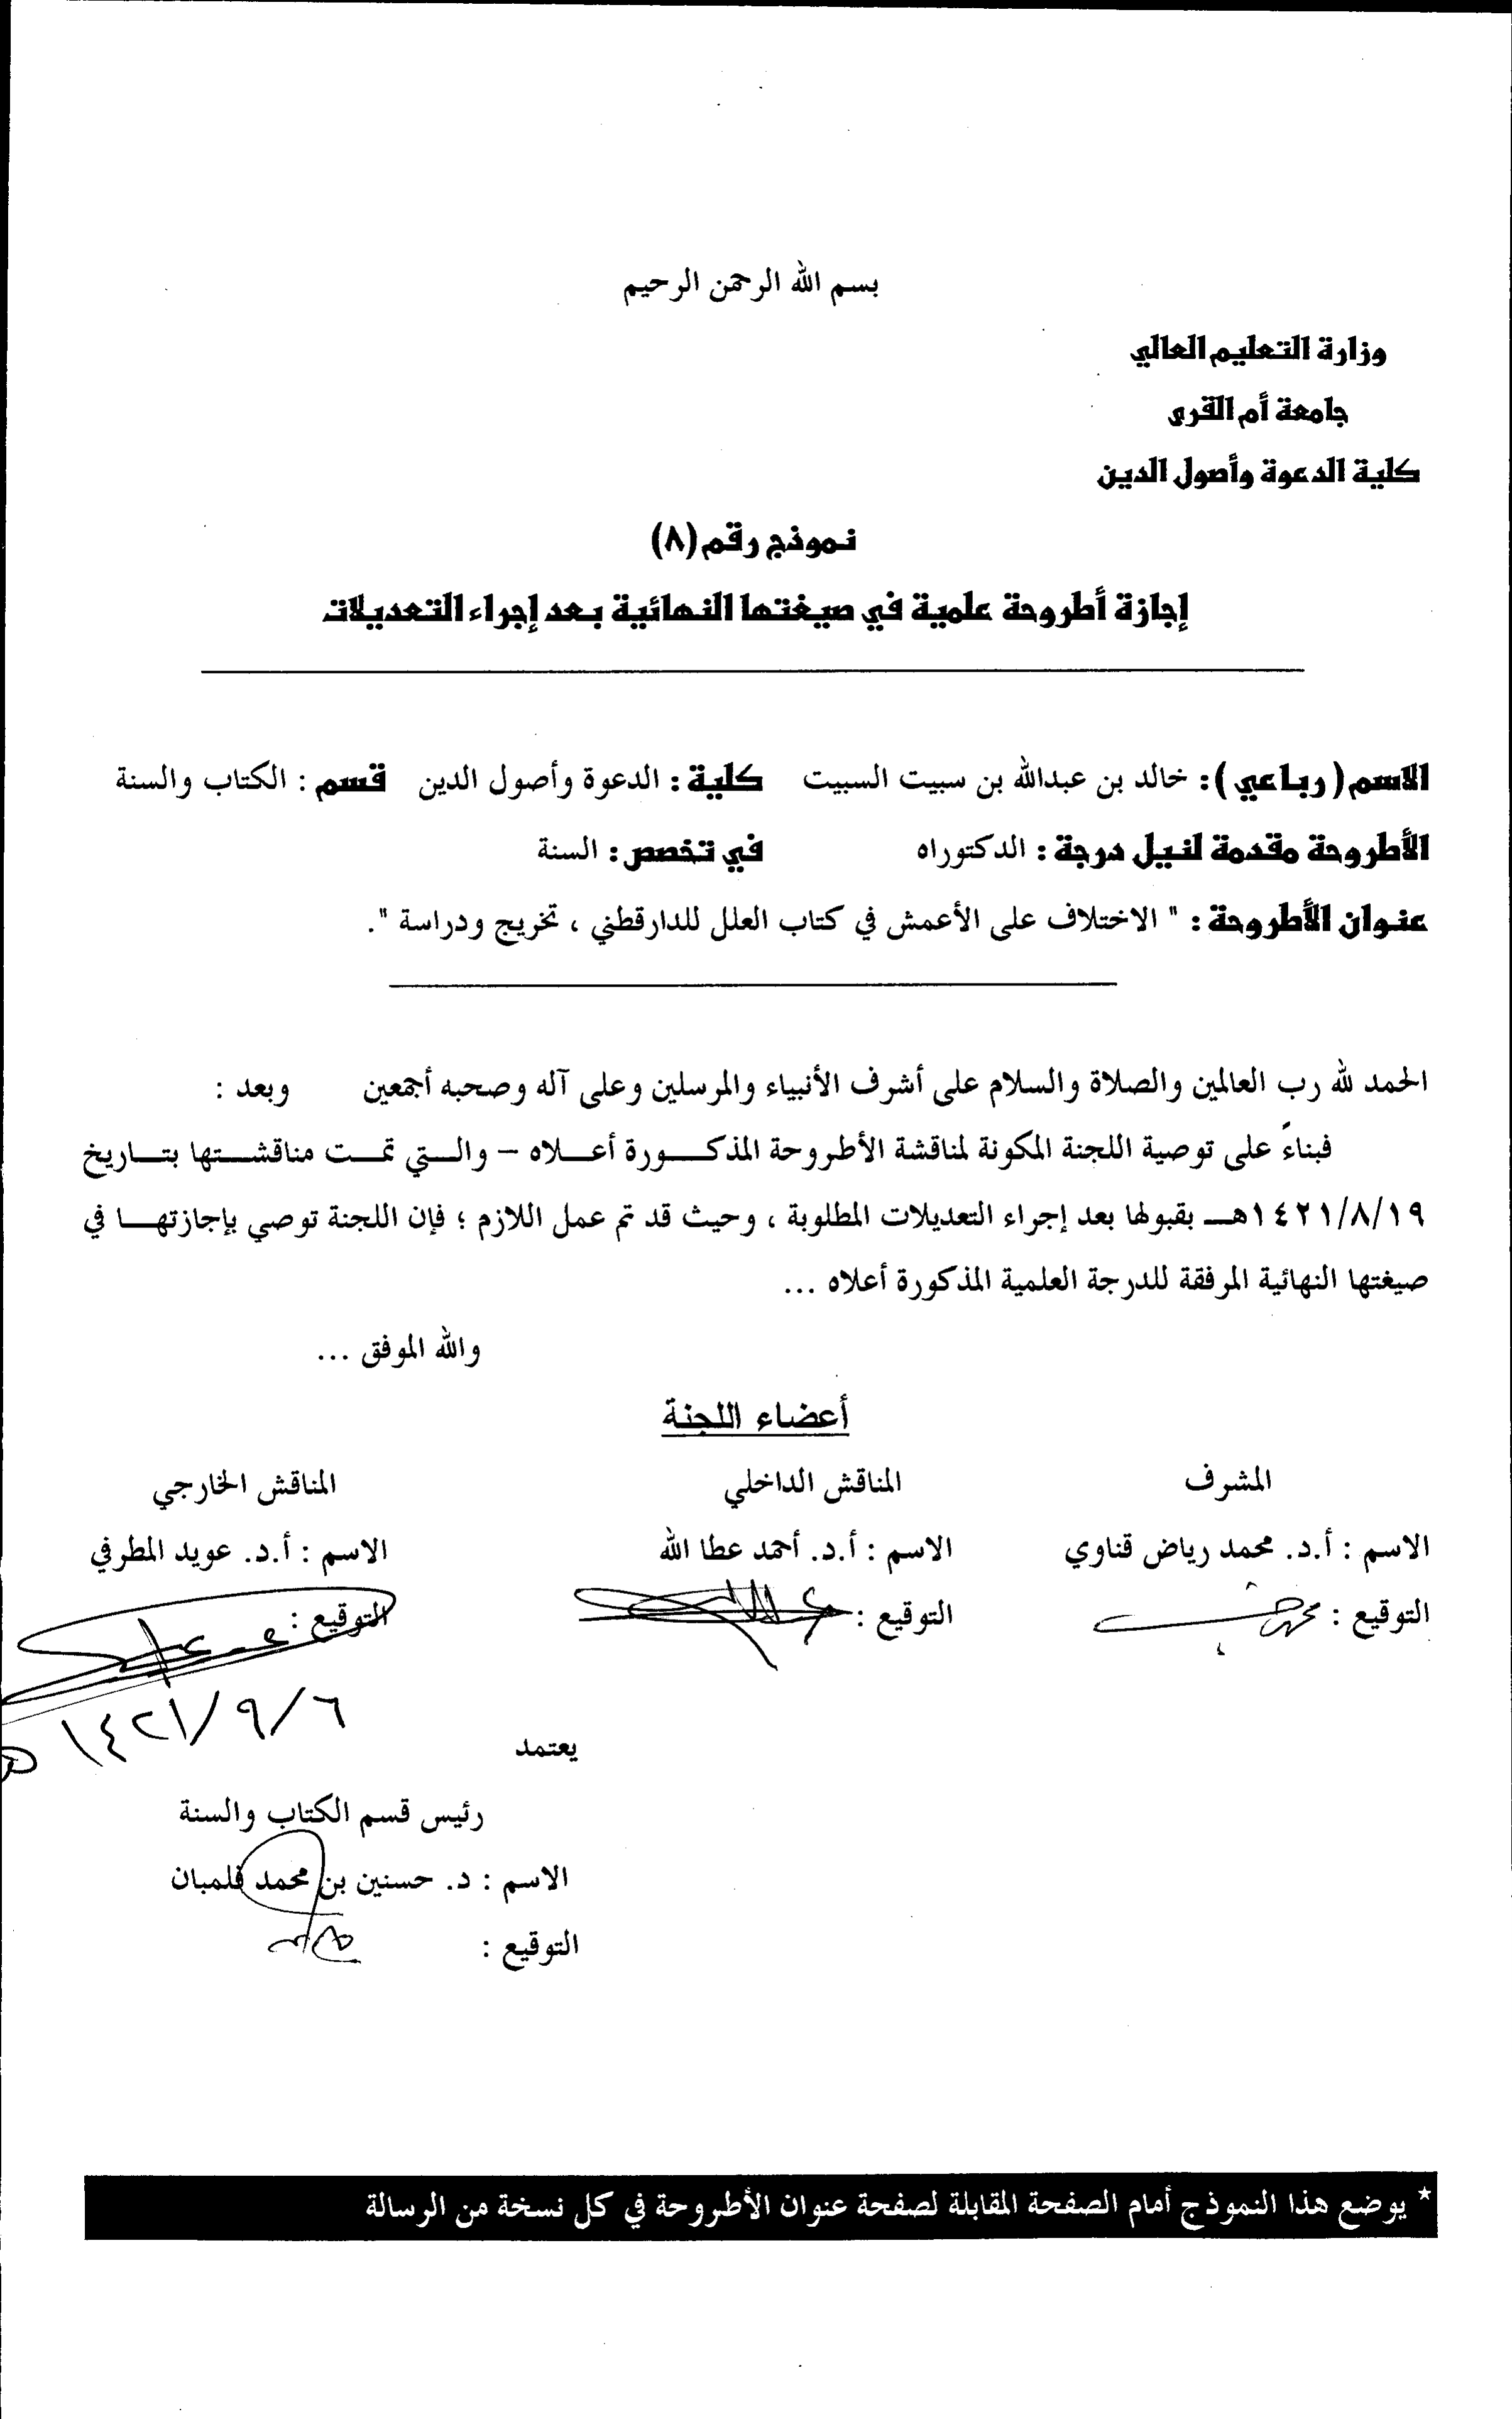 بسم الله الرحمن الرحيم
وزارة التعليم العالي
جامعة أم القرى
كلية الدعوة وأصول الدين
نموذج رقم (٨)
إجازة أطروحة علمية في صيغتها النهائية بعد إجراء التعديلات
الاسم ( رباعي ) : خالد بن عبدالله بن سبيت السبيت كلية : الدعوة وأصول الدين قسم : الكتاب والسنة
الأطروحة مقدمة لنيل درجة : الدكتوراه في تخصص : السنة
عنوان الأطروحة : " الاختلاف على الأعمش في كتاب العلل للدارقطني ، تخريج ودراسة ".
الحمد لله رب العالمين والصلاة والسلام على أشرف الأنبياء والمرسلين وعلى آله وصحبه أجمعين وبعد :
فبناءً على توصية اللجنة المكونة لمناقشة الأطروحة المذكـــورة أعـــلاه – والـــتي تمـــت مناقشـــتها بتـــاريخ
١٤٢١/٨/١٩هـــ بقبولها بعد إجراء التعديلات المطلوبة ، وحيث قد تم عمل اللازم ؛ فإن اللجنة توصي بإجازتهـــا في
صيغتها النهائية المرفقة للدرجة العلمية المذكورة أعلاه ...
والله الموفق ...
أعضاء اللجنة
المشرف المناقش الداخلي المناقش الخارجي
الاسم : أ.د. محمد رياض قناوي الاسم : أ.د. أحمد عطا الله الاسم : أ.د. عويد المطرفي
التوقيع : التوقيع : التوقيع :
١٤٢١/٩/٦ هـ
يعتمد
رئيس قسم الكتاب والسنة
الاسم : د. حسنين بن محمد فلمبان
التوقيع :
* يوضع هذا النموذج أمام الصفحة المقابلة لصفحة عنوان الأطروحة في كل نسخة من الرسالة